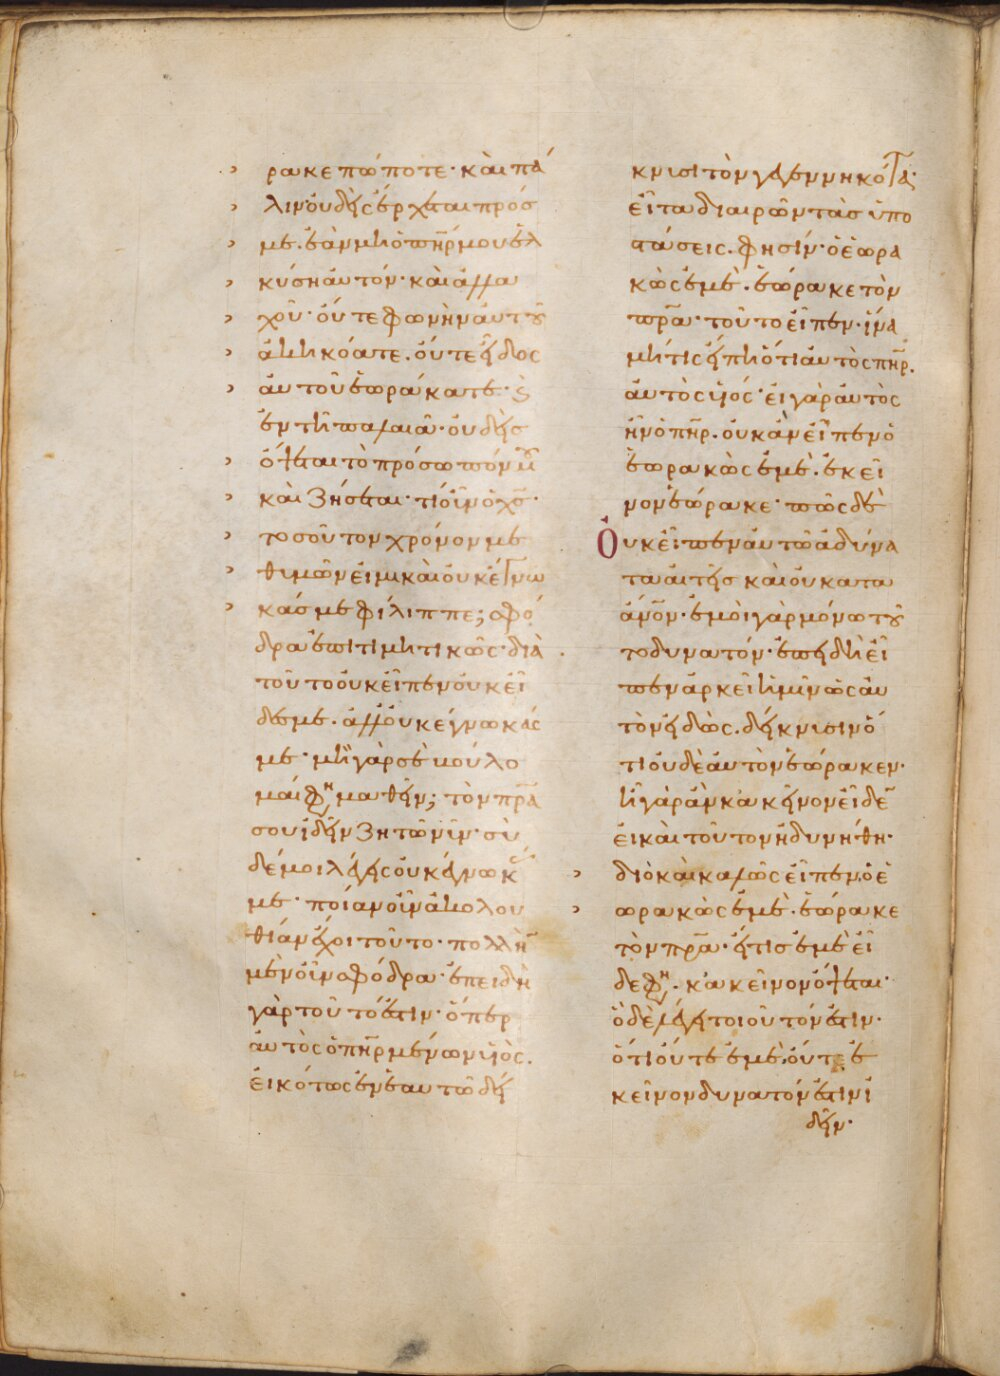 ρακε πώποτε· καὶ πά
λιν οὐδεὶς ἔρχεται πρός
με. ἐὰν μὴ ὁ πῆρ μου ἑλ
κύσῃ αὐτόν· καὶ ἀλλα
χοῦ· οὔτε φωνὴν αὐτοῦ
ἀκηκόατε. οὔτε εἶδος
αὐτοῦ ἑωράκατε· κ
ἐν τῇ παλαιᾶ· οὐδεὶς
ὄψεται τὸ πρόσωπόν μου
καὶ ζήσεται· τί οὖν ὁ χς·
τοσοῦτον χρόνον με
θ' ὑμῶν εἰμι καὶ οὐκ ἔγνω
κάς με φίλιππε; σφό
δρα ἐπιτιμητικῶς· διὰ
τοῦτο οὐκ εἶπεν οὐκ εἶ
δες με. ἀλλ' οὐκ ἔγνωκάς
με· μὴ γὰρ σὲ βούλο
μαί φη μαθεῖν; τὸν πρα
σου ἰδεῖν ζητῶ νῦν· σὺ
δέ μοι λέγεις οὐκ ἔγνωκάς
με· ποίαν οὖν ἀκολου
θίαν ἔχοι τοῦτο· πολλὴν
μὲν οὖν σφόδρα· ἐπειδὴ
γὰρ τοῦτό ἐστιν· ὅπερ
αὐτὸς ὁ πῆρ μένων υἱός.
εἰκότως ἐν ἑαυτῶ δεί
κνυσι τὸν γεγεννηκότα·
εἶτα διαιρῶν τὰς ὑπο
στάσεις. φησίν· ὁ ἑωρα
κὼς ἐμὲ. ἑώρακε τὸν
πρα· τοῦτο εἶπεν· ἵνα
μή τις εἴπῃ ὅτι αὐτὸς πῆρ.
αὐτὸς υἱός· εἰ γὰρ αὐτὸς
ἦν ὁ πῆρ. οὐκ ἂν εἶπεν ὁ
ἑωρακὼς ἐμὲ. ἐκεῖ
νον ἑώρακε· πῶς δὲ
Οὐκ εἶπεν αὐτῶ ἀδύνα
τα αἰτεῖς καὶ οὐ κατὰ
ἄνον· ἐμοὶ γὰρ μόνω τοῦ
το δυνατόν· ἐπειδὴ εἶ
πεν ἀρκεῖ ἡμῖν ὡς αὐ
τὸν εἰδὼς. δείκνυσιν ὅ
τι οὐδὲ αὐτὸν ἑώρακεν·
ἦ γὰρ ἂν κἀκεῖνον εἶδεν
εἰ καὶ τοῦτον ἠδυνήθη·
διὸ καὶ καλῶς εἶπεν. ὁ ἑ
ωρακὼς ἐμὲ. ἑώρακε
τὸν πρα· εἴ τις ἐμὲ εἶ
δε φη. κἀκεῖνον ὄψεται·
ὃ δὲ λέγει τοιοῦτόν ἐστιν·
ὅτι οὔτε ἐμὲ. οὔτε ἐ
κεῖνον δυνατόν ἐστιν ἰ
δεῖν·